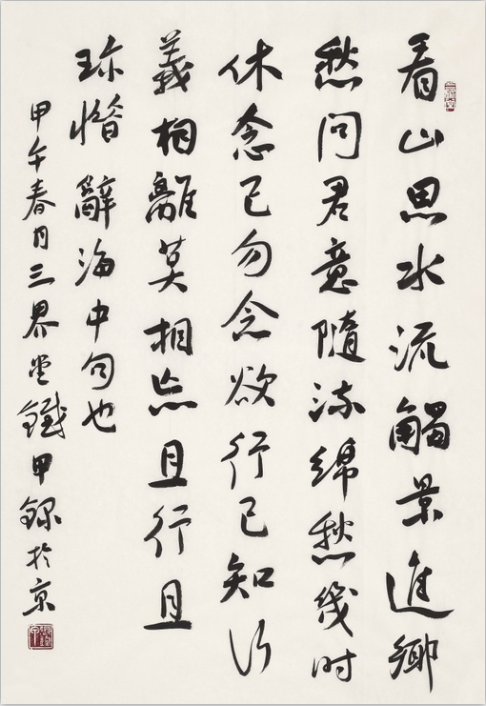 看山思水流觸景進鄉
愁問君意隨流綿愁幾时
休念己勿念欲行己知行
義相離莫相忘且行且
珍惜辭海中句也
甲午春月三界堂鐵甲錄於京